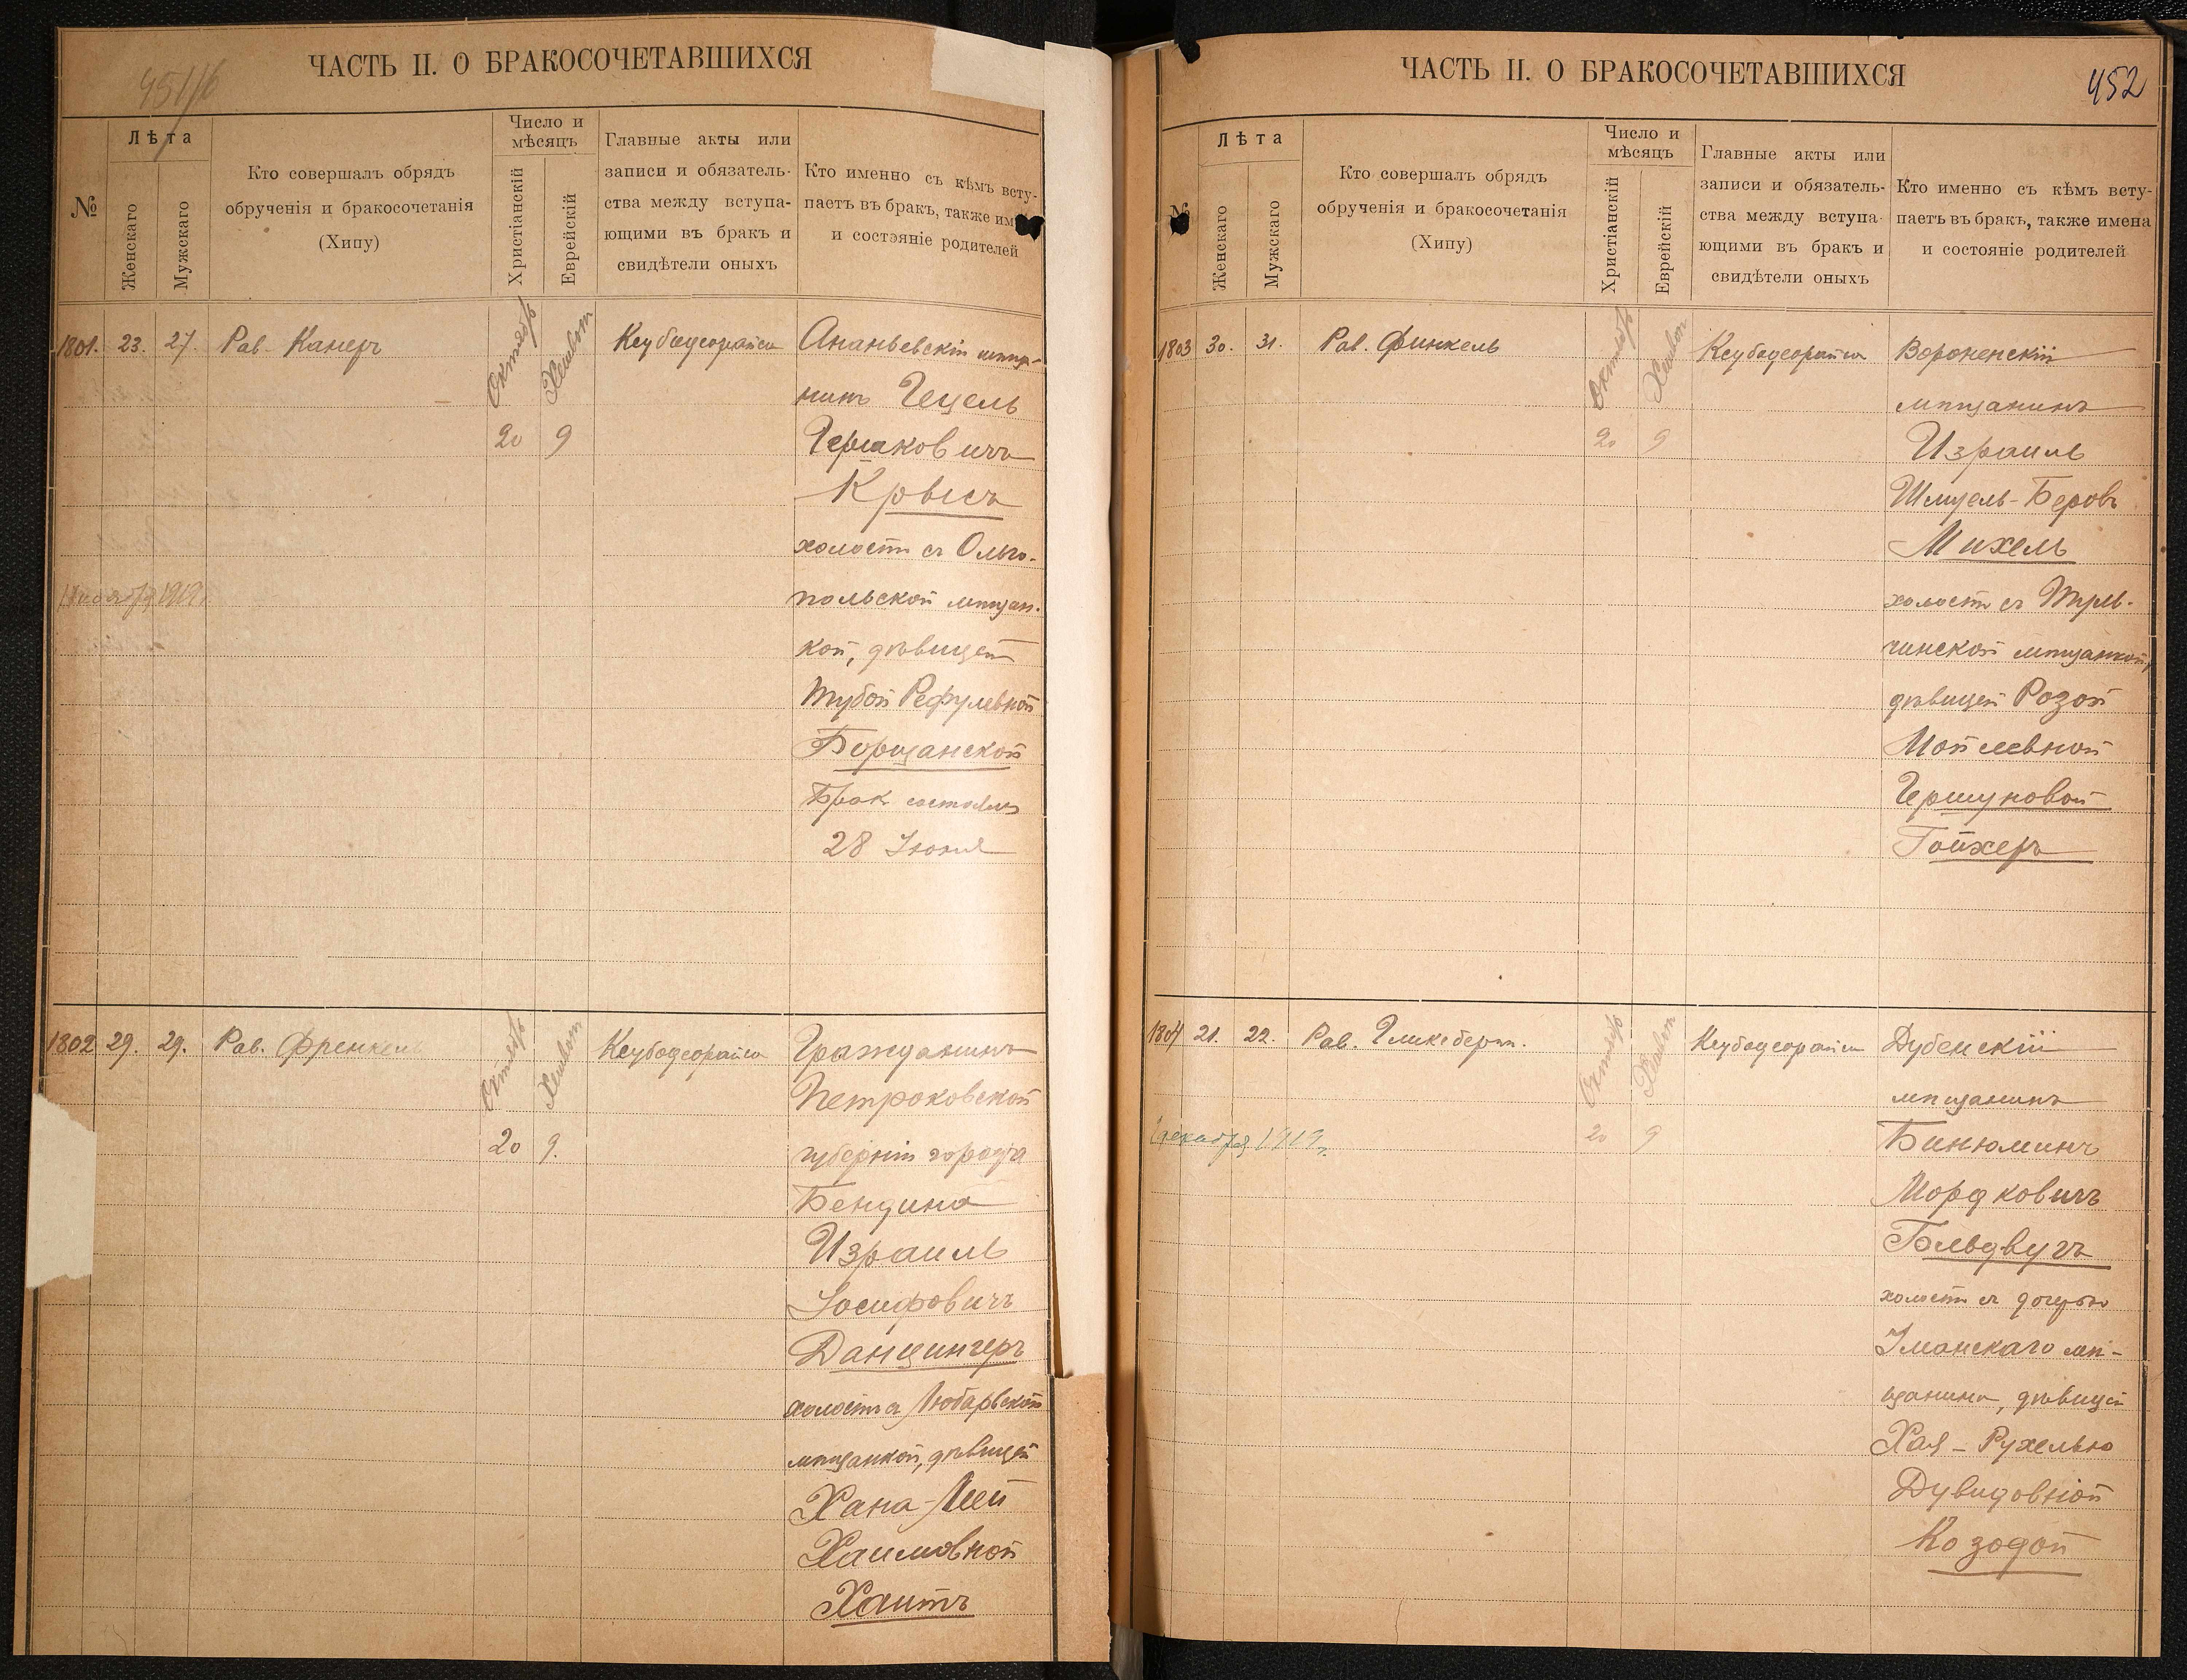 451/б
ЧАСТЬ II. О БРАКОСОЧЕТАВШИХСЯ
№
Лѣта
Женскаго
Мужскаго
Кто совершалъ обрядъ
обрученія и бракосочетанія
(Хипу)
Число и
мѣсяцъ
Христіанскій
Еврейскій
Главные акты или
записи и обязатель-
ства между вступа-
ющими въ бракъ и
свидѣтели оныхъ
Кто именно съ кѣмъ всту-
паетъ въ бракъ, также им
и состояніе родителей
1801. 23. 27. Рав. Канеръ
Октябрь
Хешвон
20 9
Ксубадеорайса
Ананьевскій мѣща-
нинъ Гецель
Гершковичъ
Крысъ
холостъ съ Ольго-
польской мѣщан-
кой, дѣвицей
Тубой Рефулевной
Борщанской
Бракъ состоялся
28 Іюня
1802 29. 29. Рав. Френкель
Октябрь
Хешвон
20 9.
Ксубадеорайса
Гражданинъ
Петроковской
губерніи города
Бендина
Израиль
Іосифовичъ
Данцингеръ
холостъ съ Любарской
мѣщанкой, дѣвицей
Хана-Леей
Хаимовной
Хаитъ
ЧАСТЬ II. О БРАКОСОЧЕТАВШИХСЯ
452
№
Лѣта
Женскаго
Мужскаго
Кто совершалъ обрядъ
обрученія и бракосочетанія
(Хипу)
Число и
мѣсяцъ
Христіанскій
Еврейскій
Главные акты или
записи и обязатель-
ства между вступа-
ющими въ бракъ и
свидѣтели оныхъ
Кто именно съ кѣмъ всту-
паетъ въ бракъ, также имена
и состояніе родителей
1803 30. 31. Рав. Финкель
Октябрь
Хешвон
20 9
Ксубадеорайса
Вороненскій
мѣщанинъ
Израиль
Шмуель-Беровъ
Михель
холостъ съ Туль-
чинской мѣщанкой,
дѣвицей Розой
Мойсеевной
Гершуновой
Гойхеръ
1804 21. 22. Рав. Гликсберг.
декабря 1919г.
Октябрь
Хешвон
20 9
Ксубадеорайса
Дубенскій
мѣщанинъ
Бинюминъ
Мордковичъ
Гольдвугъ
холостъ съ дочерью
Уманскаго мѣ-
щанина, дѣвицей
Хая-Рухелью
Дувидовной
Козодой